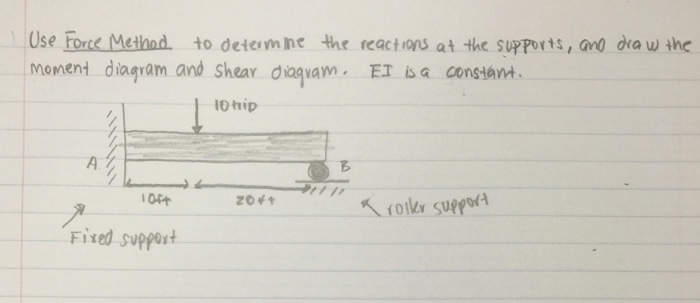 Use Force Method to determine the reactions at the supports, and draw the
moment diagram and shear diagram. EI is a constant.
10 kip
A
B
10ft
20ft
roller support
Fixed support